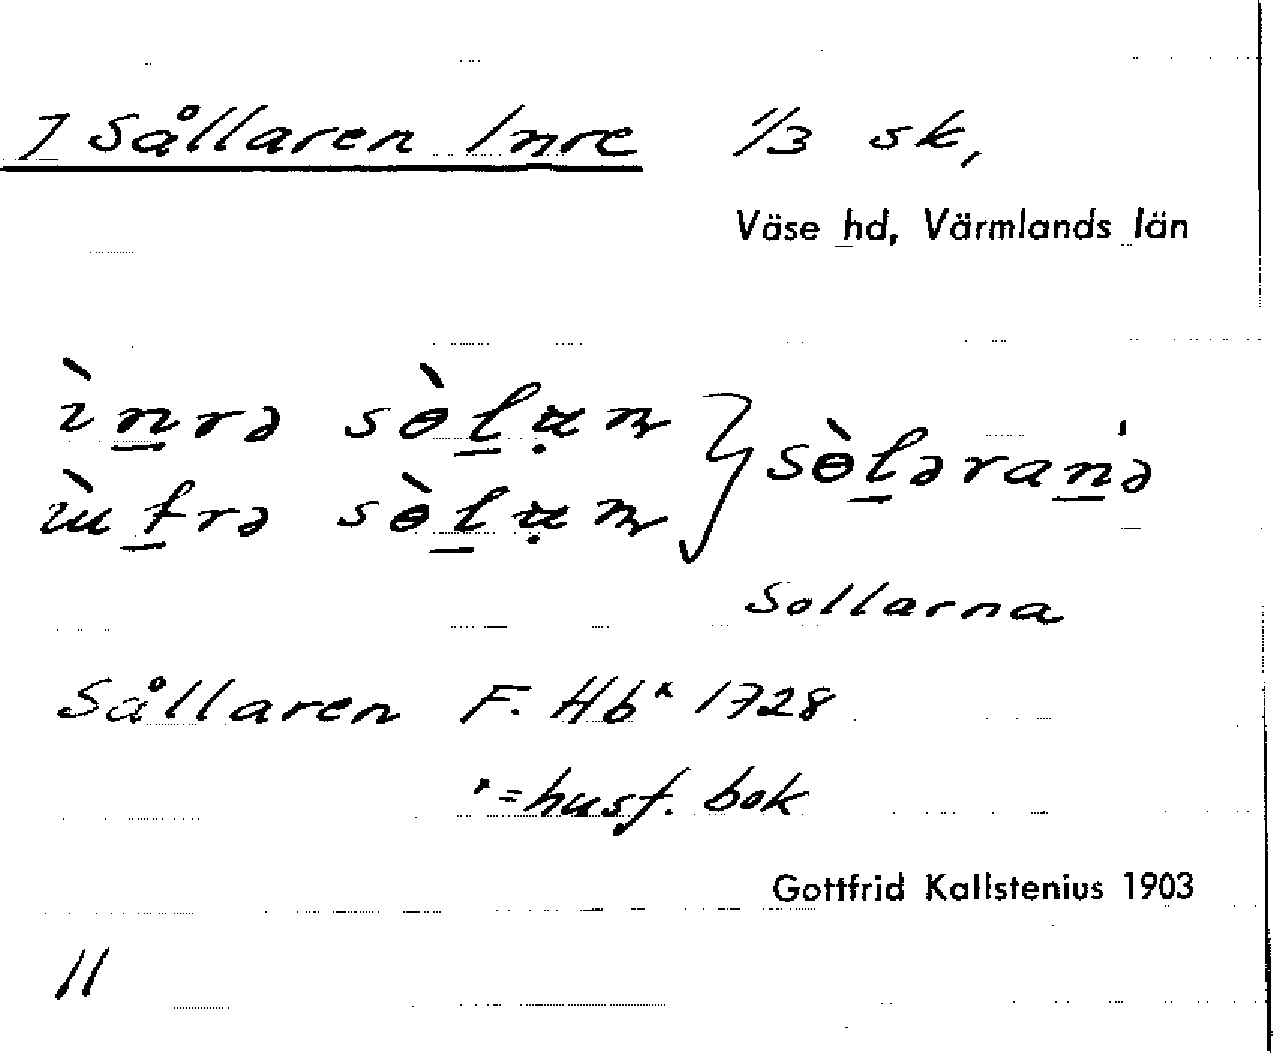 7 Sållaren Inre 1/3 sk,
Väse hd, Värmlands län
ìnrə sòlan } sòləranə
ùtrə sòlan
Sollarna
Sållaren F. Hbˣ 1728
ˣ=husf. bok
Gottfrid Kallstenius 1903
11